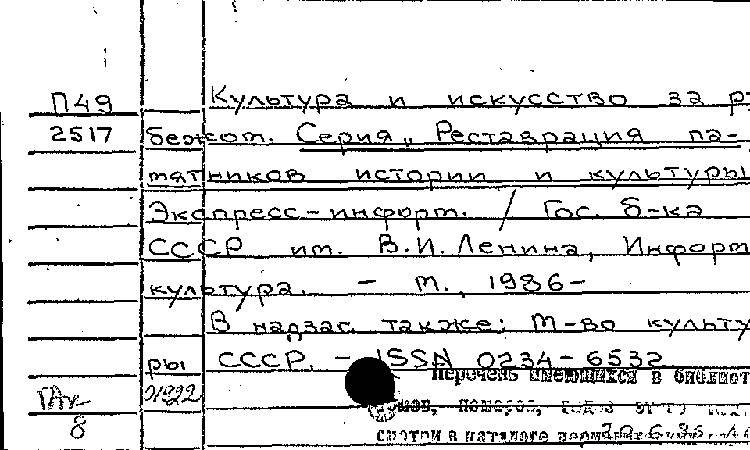 П49 Культура и искусство за ру
2517 бежом. Серия „Реставрация па-
мятников истории и культуры
Экспресс-информ. / Гос. б-ка
СССР им. В.И. Ленина, Информ
культура. - М., 1986-
В надзаг. также: М-во культу
ры СССР. - ISSN 0234-6532
Перечень имеющихся в библиот
8 номеров,
смотри в каталоге